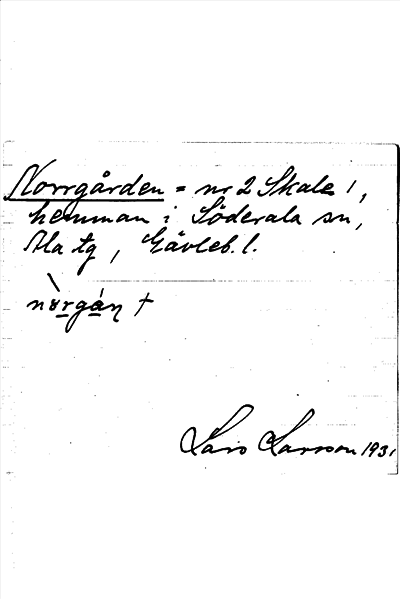 Norrgården = nr 2 Skale 1,
hemman i Söderala sn,
Ala tg, Gävleb. l.
nòrgán †
Lars Larsson 1931